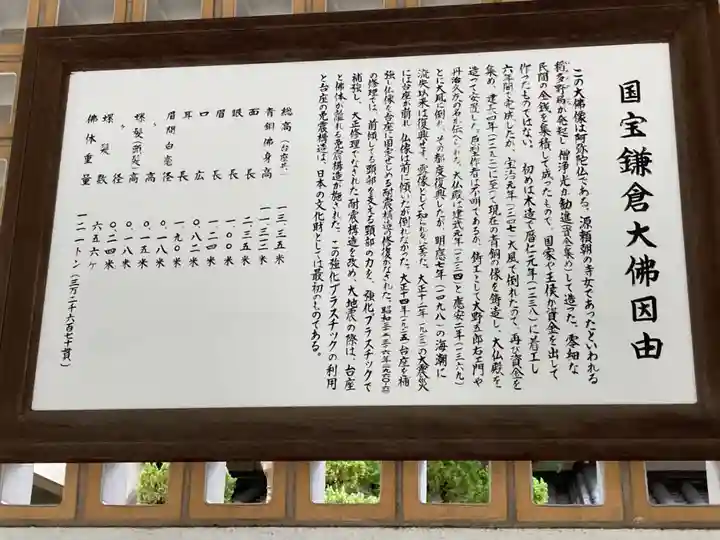 国宝鎌倉大佛因由
この大佛像は阿弥陀仏である。源頼朝の侍女であったといわれる
稲多野局が発起し、僧浄光が勧進(資金集め)して造った。零細な
民間の金銭を集積して成ったもので、国家や王侯が資金を出して
作ったものではない。初めは木造で暦仁元年(一二三八)に着工し
六年間で完成したが、宝治元年(一二四七)大風で倒れたので、再び資金を
集め、建長四年(一二五二)に至って現在の青銅の像を鋳造し、大仏殿を
造って安置した。原型作者は不明であるが、鋳工として大野五郎右エ門や
丹治久友の名が伝えられた。大仏殿は建武元年(一三三四)と應安二年(一三六九)
とに大風に倒れ、その都度復興したが、明應七年(一四九八)の海潮に
流失以来は復興せず、露像として知られるに至った。大正十二年(一九二三)の大震火
には台座が崩れ、仏像は前に傾いたが倒れなかった。大正十四年(一九二五)台座を補
強し、仏像を台座に固定せしめる耐震構造の修復がなされた。昭和三五・三六年(一九六〇-六一)
の修理では、前傾してる頭部を支える頸部の力を、強化プラスチックで
補強し、大正修理でなされた耐震構造を改め、大地震の際は、台座
と佛体が離れる免震構造が施された。この強化プラスチックの利用
と台座の免震構造は、日本の文化財としては最初のものである。
総高(台座共) 一三・三五米
青銅佛身高 一一・三一二米
面長 二・三五米
眼長 一・〇〇米
眉長 一・二四米
口広 〇・八二米
耳長 一・九〇米
眉間白毫径 〇・一八米
螺髪(頭髪)高 〇・一八米
〃径 〇・二四米
螺髪数 六五六ヶ
佛体重量 一二一トン(三万二千六百七十貫)